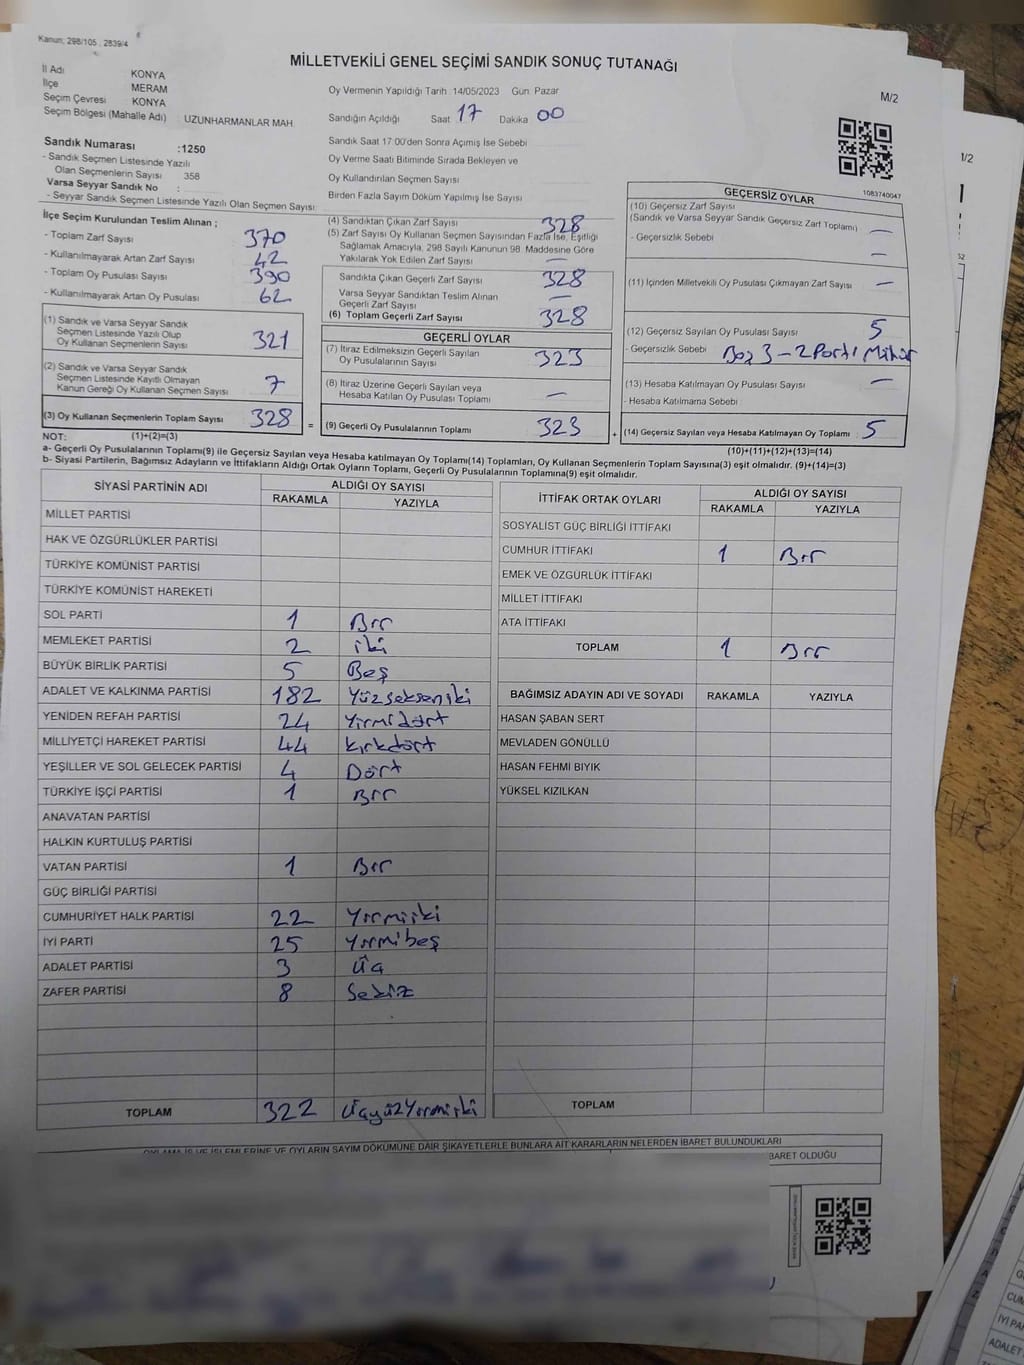 Kanun; 298/105 , 2839/4
MİLLETVEKİLİ GENEL SEÇİMİ SANDIK SONUÇ TUTANAĞI
M/2
İl Adı KONYA
İlçe MERAM
Seçim Çevresi KONYA
Seçim Bölgesi (Mahalle Adı) UZUNHARMANLAR MAH.
Sandık Numarası :1250
- Sandık Seçmen Listesinde Yazılı
Olan Seçmenlerin Sayısı 358
Varsa Seyyar Sandık No :
- Seyyar Sandık Seçmen Listesinde Yazılı Olan Seçmen Sayısı:
Oy Vermenin Yapıldığı Tarih :14/05/2023 Gün: Pazar
Sandığın Açıldığı Saat 17 Dakika 00
Sandık Saat 17:00'den Sonra Açılmış İse Sebebi
Oy Verme Saati Bitiminde Sırada Bekleyen ve
Oy Kullandırılan Seçmen Sayısı
Birden Fazla Sayım Döküm Yapılmış İse Sayısı
1083740047
İlçe Seçim Kurulundan Teslim Alınan ;
- Toplam Zarf Sayısı 370
- Kullanılmayarak Artan Zarf Sayısı 42
- Toplam Oy Pusulası Sayısı 390
- Kullanılmayarak Artan Oy Pusulası 62
(1) Sandık ve Varsa Seyyar Sandık
Seçmen Listesinde Yazılı Olup
Oy Kullanan Seçmenlerin Sayısı 321
(2) Sandık ve Varsa Seyyar Sandık
Seçmen Listesinde Kayıtlı Olmayan
Kanun Gereği Oy Kullanan Seçmen Sayısı 7
(3) Oy Kullanan Seçmenlerin Toplam Sayısı 328 =
(4) Sandıktan Çıkan Zarf Sayısı 328
(5) Zarf Sayısı Oy Kullanan Seçmen Sayısından Fazla İse, Eşitliği
Sağlamak Amacıyla, 298 Sayılı Kanunun 98. Maddesine Göre
Yakılarak Yok Edilen Zarf Sayısı —
Sandıkta Çıkan Geçerli Zarf Sayısı 328
Varsa Seyyar Sandıktan Teslim Alınan
Geçerli Zarf Sayısı —
(6) Toplam Geçerli Zarf Sayısı 328
GEÇERLİ OYLAR
(7) İtiraz Edilmeksizin Geçerli Sayılan
Oy Pusulalarının Sayısı 323
(8) İtiraz Üzerine Geçerli Sayılan veya
Hesaba Katılan Oy Pusulası Toplamı —
(9) Geçerli Oy Pusulalarının Toplamı 323 +
GEÇERSİZ OYLAR
(10) Geçersiz Zarf Sayısı
(Sandık ve Varsa Seyyar Sandık Geçersiz Zarf Toplamı) —
- Geçersizlik Sebebi —
(11) İçinden Milletvekili Oy Pusulası Çıkmayan Zarf Sayısı —
(12) Geçersiz Sayılan Oy Pusulası Sayısı 5
- Geçersizlik Sebebi Boş 3 - 2 Parti Mühür
(13) Hesaba Katılmayan Oy Pusulası Sayısı —
- Hesaba Katılmama Sebebi
(14) Geçersiz Sayılan veya Hesaba Katılmayan Oy Toplamı 5
NOT: (1)+(2)=(3) (10)+(11)+(12)+(13)=(14)
a- Geçerli Oy Pusulalarının Toplamı(9) ile Geçersiz Sayılan veya Hesaba Katılmayan Oy Toplamı(14) Toplamları, Oy Kullanan Seçmenlerin Toplam Sayısına(3) eşit olmalıdır. (9)+(14)=(3)
b- Siyasi Partilerin, Bağımsız Adayların ve İttifakların Aldığı Ortak Oyların Toplamı, Geçerli Oy Pusulalarının Toplamına(9) eşit olmalıdır.
SİYASİ PARTİNİN ADI ALDIĞI OY SAYISI
RAKAMLA YAZIYLA
MİLLET PARTİSİ
HAK VE ÖZGÜRLÜKLER PARTİSİ
TÜRKİYE KOMÜNİST PARTİSİ
TÜRKİYE KOMÜNİST HAREKETİ
SOL PARTİ 1 Bir
MEMLEKET PARTİSİ 2 iki
BÜYÜK BİRLİK PARTİSİ 5 Beş
ADALET VE KALKINMA PARTİSİ 182 Yüzsekseniki
YENİDEN REFAH PARTİSİ 24 Yirmidört
MİLLİYETÇİ HAREKET PARTİSİ 44 Kırkdört
YEŞİLLER VE SOL GELECEK PARTİSİ 4 Dört
TÜRKİYE İŞÇİ PARTİSİ 1 Bir
ANAVATAN PARTİSİ
HALKIN KURTULUŞ PARTİSİ
VATAN PARTİSİ 1 Bir
GÜÇ BİRLİĞİ PARTİSİ
CUMHURİYET HALK PARTİSİ 22 Yirmiiki
İYİ PARTİ 25 Yirmibeş
ADALET PARTİSİ 3 Üç
ZAFER PARTİSİ 8 Sekiz
TOPLAM 322 Üçyüzyirmiiki
İTTİFAK ORTAK OYLARI ALDIĞI OY SAYISI
RAKAMLA YAZIYLA
SOSYALİST GÜÇ BİRLİĞİ İTTİFAKI
CUMHUR İTTİFAKI 1 Bir
EMEK VE ÖZGÜRLÜK İTTİFAKI
MİLLET İTTİFAKI
ATA İTTİFAKI
TOPLAM 1 Bir
BAĞIMSIZ ADAYIN ADI VE SOYADI RAKAMLA YAZIYLA
HASAN ŞABAN SERT
MEVLADEN GÖNÜLLÜ
HASAN FEHMİ BIYIK
YÜKSEL KIZILKAN
TOPLAM
OYLAMA İŞ VE İŞLEMLERİNE VE OYLARIN SAYIM DÖKÜMÜNE DAİR ŞİKAYETLERLE BUNLARA AİT KARARLARIN NELERDEN İBARET BULUNDUKLARI
BARET OLDUĞU
1/2